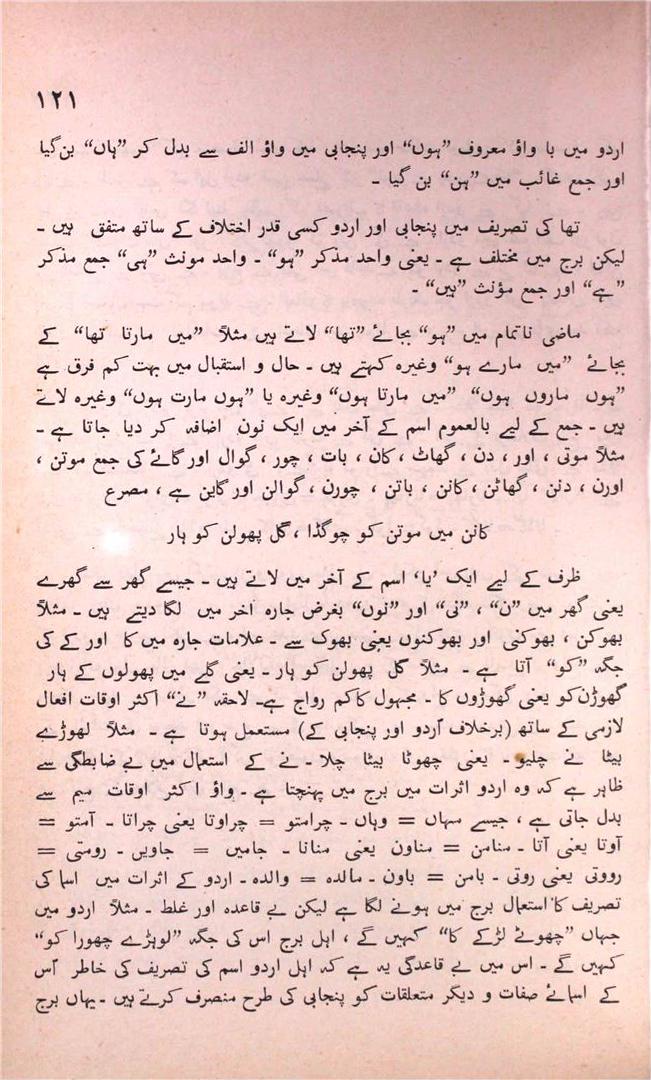 ۱۲۱
اردو میں با واؤ معروف ”ہوں“ اور پنجابی میں واؤ الف سے بدل کر ”ہاں“ بن گیا
اور جمع غائب میں ”ہن“ بن گیا ۔
تھا کی تصریف میں پنجابی اور اردو کسی قدر اختلاف کے ساتھ متفق ہیں ۔
لیکن برج میں مختلف ہے ۔ یعنی واحد مذکر ”ہو“ ۔ واحد مونث ”ہی“ جمع مذکر
”ہے“ اور جمع مؤنث ”ہیں“ ۔
ماضی ناتمام میں ”ہو“ بجائے ”تھا“ لاتے ہیں مثلاً ”میں مارتا تھا“ کے
بجائے ”میں مارے ہو“ وغیرہ کہتے ہیں ۔ حال و استقبال میں بہت کم فرق ہے
”ہوں ماروں ہوں“ ”میں مارتا ہوں“ وغیرہ یا ”ہوں مارت ہوں“ وغیرہ لاتے
ہیں ۔ جمع کے لیے بالعموم اسم کے آخر میں ایک نون اضافہ کر دیا جاتا ہے ۔
مثلاً موتی ، اور ، دن ، گھاٹ ، کان ، بات ، چور ، گوال اور گائے کی جمع موتن ،
اورن ، دنن ، گھاٹن ، کانن ، باتن ، چورن ، گوالن اور گاین ہے ، مصرع
کانن میں موتن کو چوگڈا ، گل پھولن کو ہار
ظرف کے لیے ایک ’یا‘ اسم کے آخر میں لاتے ہیں ۔ جیسے گھر سے گھرے
یعنی گھر میں ”ن“ ، ”نی“ اور ”نوں“ بغرض جارہ آخر میں لگا دیتے ہیں ۔ مثلاً
بھوکن ، بھوکنی اور بھوکنوں یعنی بھوک سے ۔ علامات جارہ میں کا اور کے کی
جگہ ”کو“ آتا ہے ۔ مثلاً گل پھولن کو ہار ۔ یعنی گلے میں پھولوں کے ہار
گھوڑن کو یعنی گھوڑوں کا ۔ مجہول کا کم رواج ہے۔ لاحقہ ”نے“ اکثر اوقات افعال
لازمی کے ساتھ (برخلاف اُردو اور پنجابی کے) مستعمل ہوتا ہے ۔ مثلاً لھوڑے
بیٹا نے چلیو ۔ یعنی چھوٹا بیٹا چلا ۔ نے کے استعمال میں بے ضابطگی سے
ظاہر ہے کہ وہ اردو اثرات میں برج میں پہنچتا ہے ۔ واؤ اکثر اوقات میم سے
بدل جاتی ہے ، جیسے مہاں = وہاں ۔ چرامتو = چراوتا یعنی چراتا ۔ آمتو =
آوتا یعنی آتا ۔ منامن = مناون یعنی منانا ۔ جامیں = جاویں ۔ رومتی =
رووتی یعنی روتی ۔ بامن = باون ۔ مالدہ = والدہ ۔ اردو کے اثرات میں اسما کی
تصریف کا استعمال برج میں ہونے لگا ہے لیکن بے قاعدہ اور غلط ۔ مثلاً اردو میں
جہاں ”چھوٹے لڑکے کا“ کہیں گے ، اہل برج اس کی جگہ ”لوہڑے چھورا کو“
کہیں گے ۔ اس میں بے قاعدگی یہ ہے کہ اہل اردو اسم کی تصریف کی خاطر اُس
کے اسمائے صفات و دیگر متعلقات کو پنجابی کی طرح منصرف کرتے ہیں ۔ یہاں برج